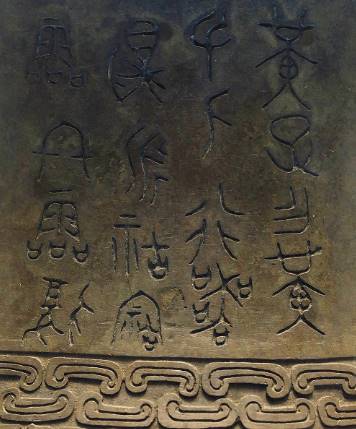 黃子乍黃
甫人行器
則永祜福
霝冬霝後